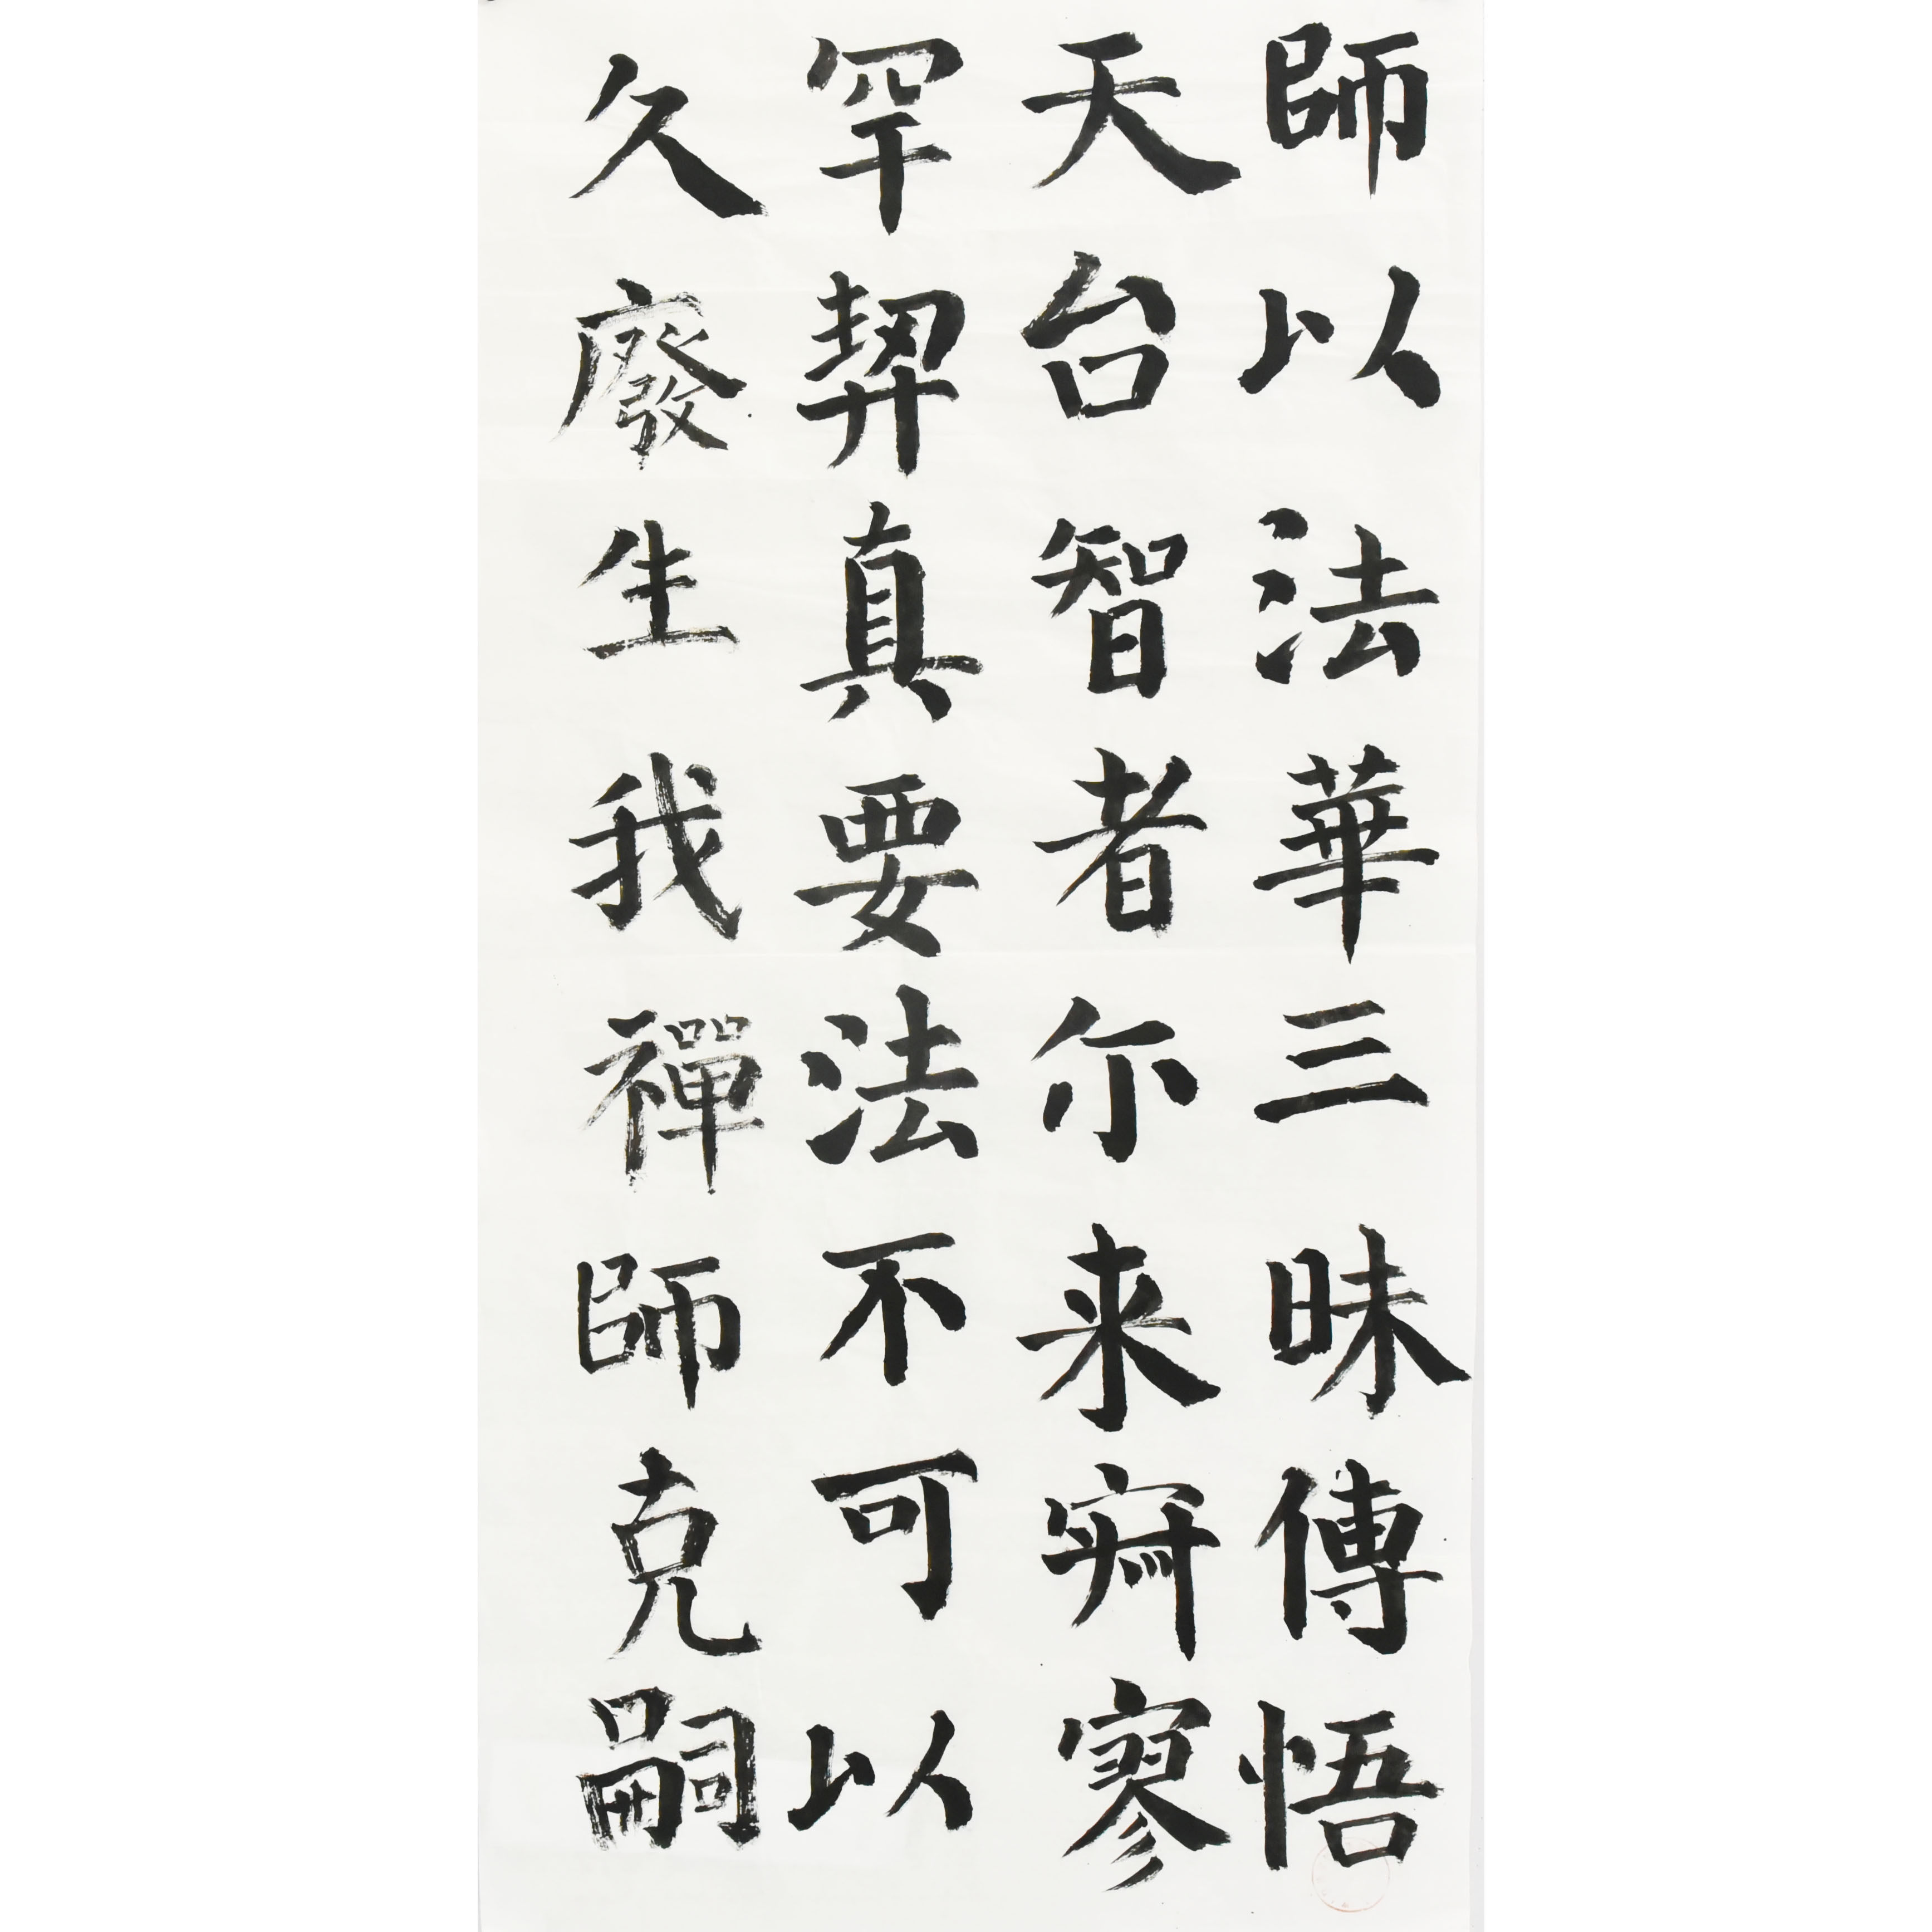 師以法華三昧傳悟
天台智者尒来寂寥
罕契真要法不可以
久廢生我禪師克嗣